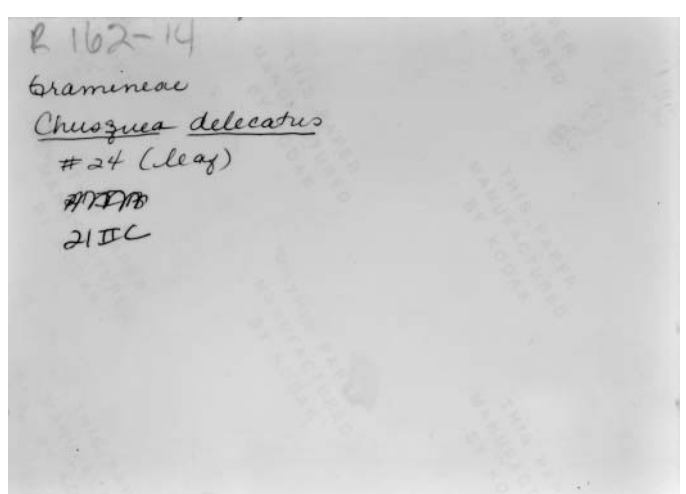 R 162-14
Gramineae
Chusquea delecatus
#24 (leaf)
21 II C
THIS PAPER
MANUFACTURED
BY KODAK